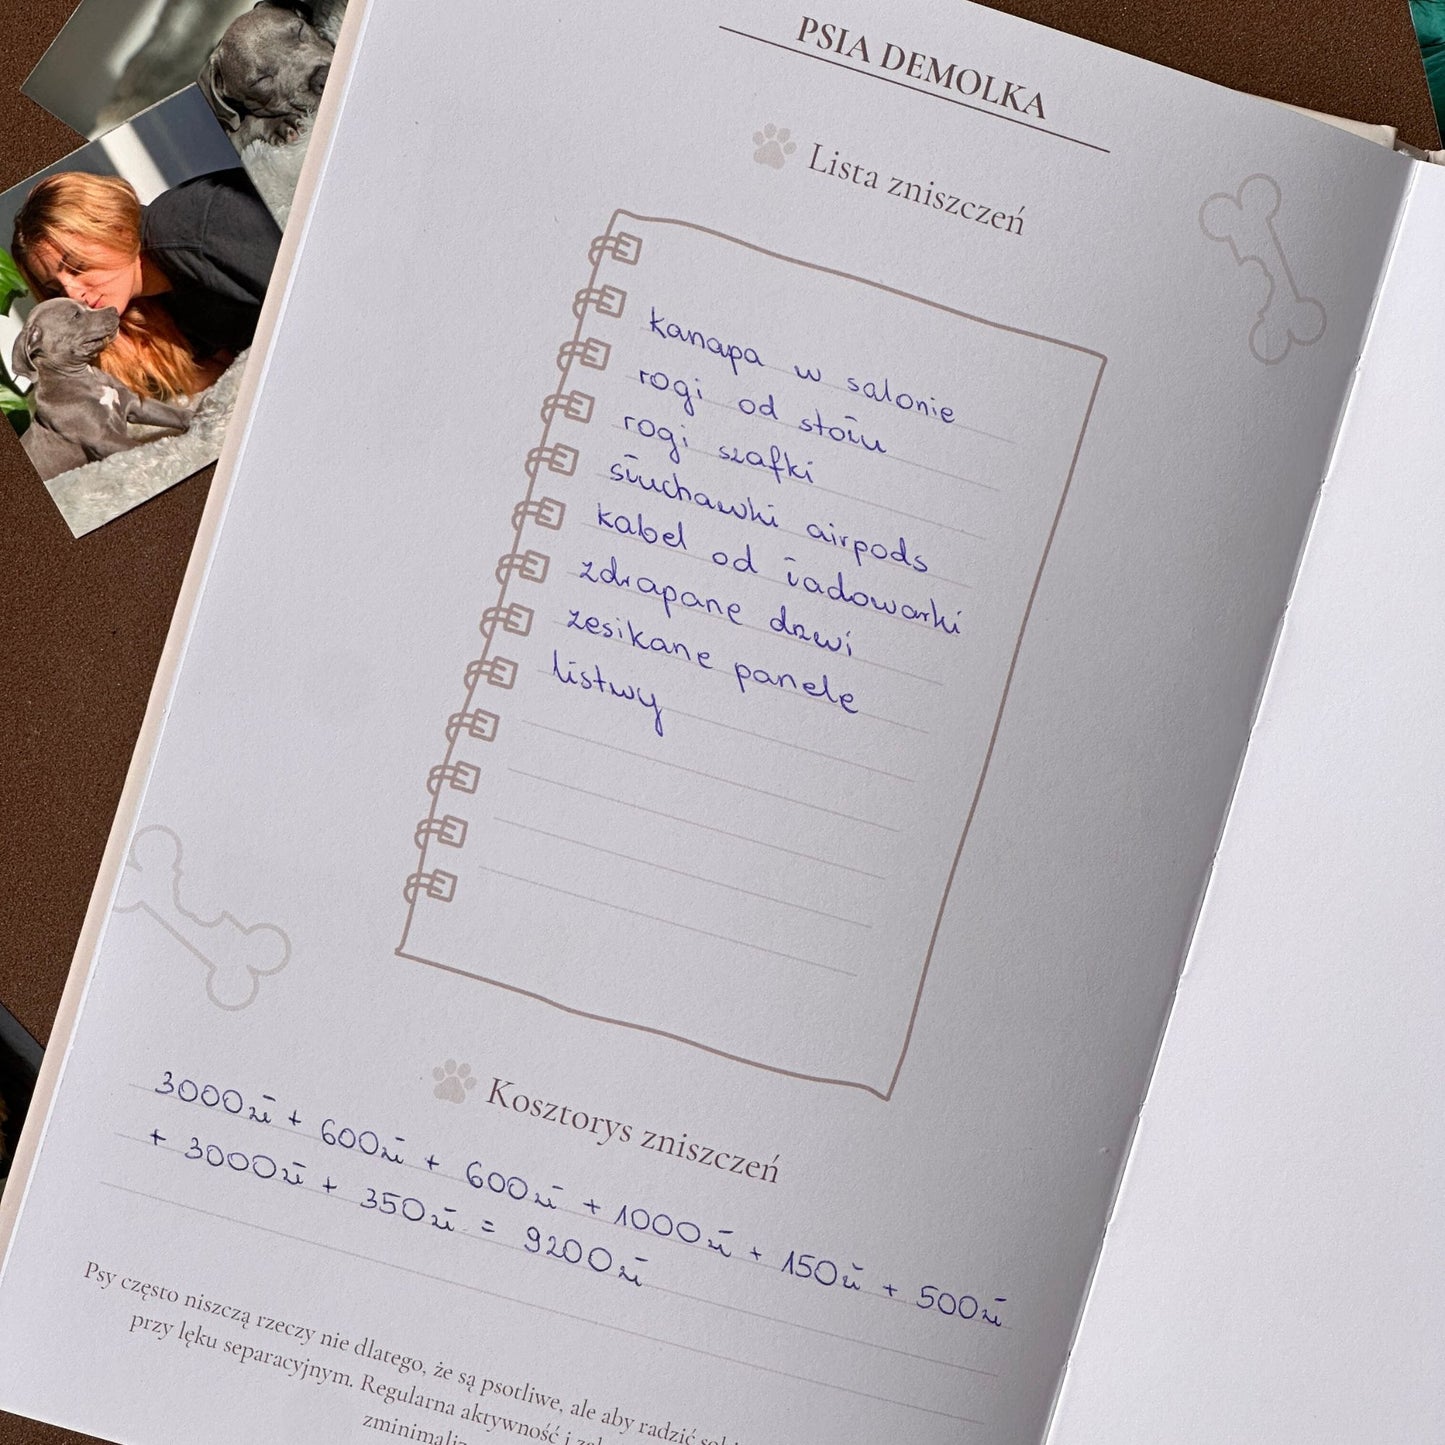 PSIA DEMOLKA
Lista zniszczeń
kanapa w salonie
rogi od stołu
rogi szafki
słuchawki airpods
kabel od ładowarki
zdrapane drzwi
zesikane panele
listwy
Kosztorys zniszczeń
3000zł + 600zł + 600zł + 1000zł + 150zł + 500zł
+ 3000zł + 350zł = 9200zł
Psy często niszczą rzeczy nie dlatego, że są psotliwe, ale aby radzić
przy lęku separacyjnym. Regularna aktywność i